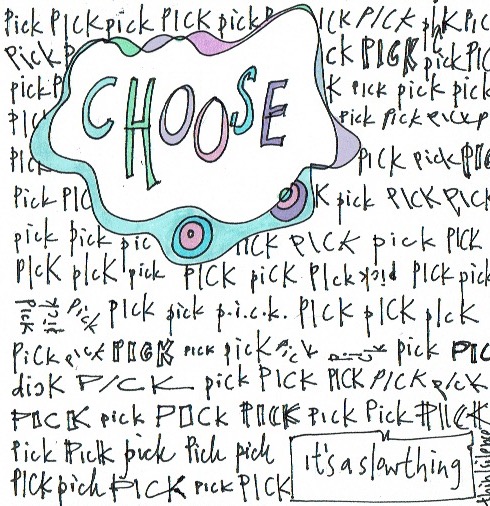 Pick PICK pick PICK pick PICK PICK pick PIC
Pick P CK PICK pick PIC
pick P K PICK pick pick
PIC Pick Pick PICK P
PIC PICK pick PIC
Pick PIC K pick PICK PICK
pick pick pic ICK PICK pick PICK
PICK pick pick PICK pick PICK pick PICK pick
pick pick pick PICK pick p.i.c.k. PICK pICK pick
Pick pick PICK PICK pick pick pick pick PIC
dick PICK pick PICK PICK PICK pick
PICK pick PICK PICK pick Pick PICK
pick Pick pick Pick pick
PICK pick PICK pick PICK
CHOOSE
it's a slowthing